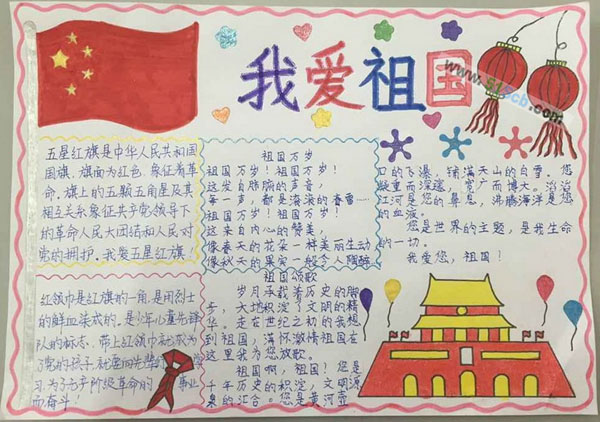 我爱祖国
www.51scb.com
五星红旗是中华人民共和国
国旗，旗面为红色，象征着革
命，旗上的五颗五角星及其
相互关系象征共产党领导下
的革命人民大团结和人民对
党的拥护。我爱五星红旗！
红领巾是红旗的一角，是用烈士
的鲜血染成的。是少年儿童先锋
队的标志，带上红领巾就成为
了党的孩子，就要向先辈
习，为了无产阶级革命的 事业
而奋斗！
祖国万岁
祖国万岁！祖国万岁！
这发自肺腑的声音，
每一声，都是海浪的
祖国万岁！祖国万岁！
这来自内心的赞美，
像春天的花朵一样美丽生动
像秋天的果实一般令人陶醉
祖国颂歌
岁月承载着历史的脚
步，大地积淀了文明的精
华。走在世纪之初的我想
到祖国，满怀激情祖国在
这里我为您放歌。
祖国啊，祖国！您是
千年历史的积淀，文明源
泉的汇合。您是黄河壶
口的飞瀑，铺满天山的白雪。您
凝重而深邃，宽广而博大。滔滔
江河是您的鼻息，沸腾海洋是您
的血液。
您是世界的主题，是我生命
的一切。
我爱您，祖国！